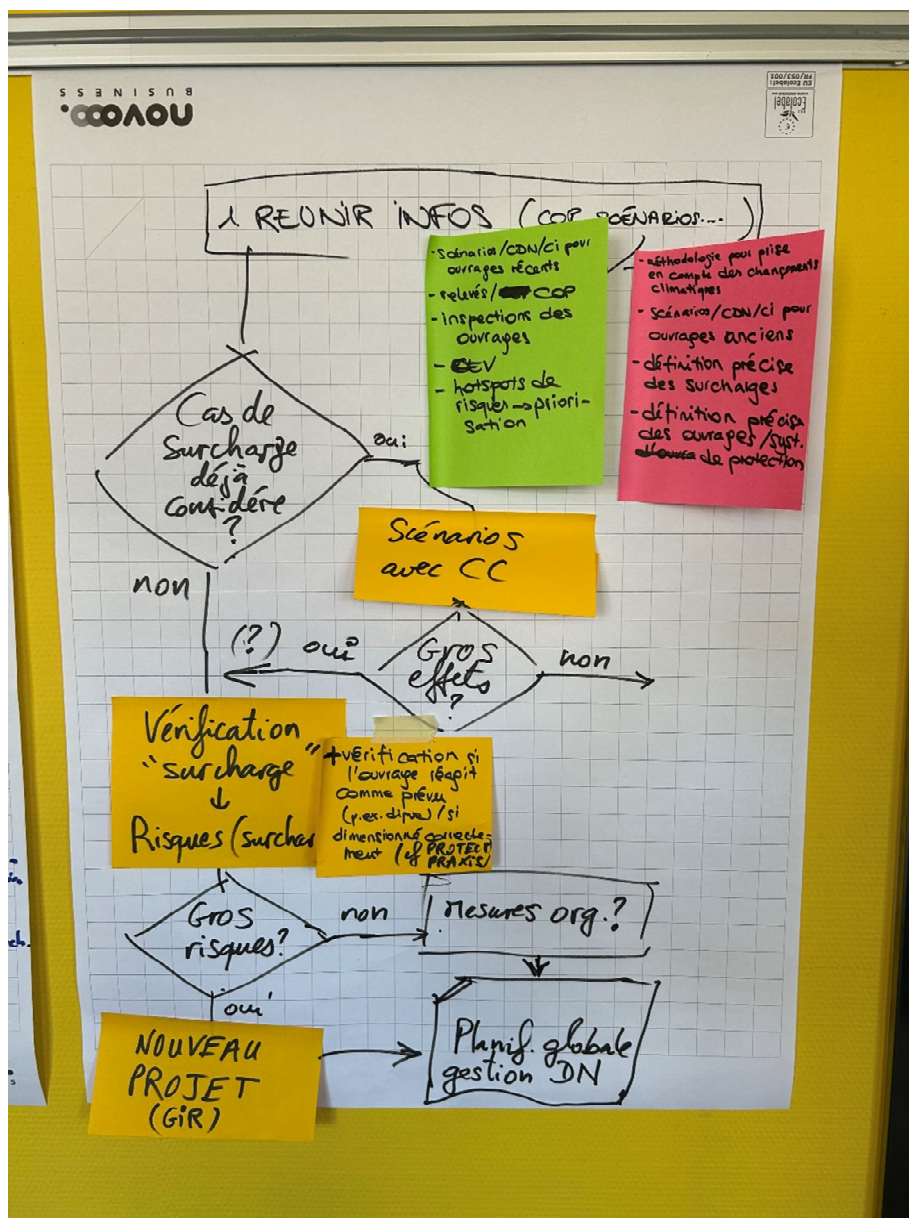 novooo.
BUSINESS
EU Ecolabel:
FR/053/003
Ecolabel
1 REUNIR INFOS (COP, SCÉNARIOS...)
- Scénarios/CDN/ci pour
ouvrages récents
- relevés/ COP
- inspections des
ouvrages
- EV
- hotspots de
risques → priori-
sation
- méthodologie pour prise
en compte des changements
climatiques
- scénarios/CDN/ci pour
ouvrages anciens
- définition précise
des surcharges
- définition précise
des ouvrages/syst.
de protection
Cas de
surcharge
déjà
considéré
?
oui
non
Scénarios
avec CC
Gros
effets
?
(?) oui
non
Vérification
"surcharge"
↓
Risques (surchar
+ vérification si
l'ouvrage réagit
comme prévu
(p.ex. digue)/si
dimensionné correcte-
ment (cf PROTECT
PRAXIS)
Gros
risques?
non
oui
Mesures org.?
NOUVEAU
PROJET
(GiR)
Planif. globale
gestion DN